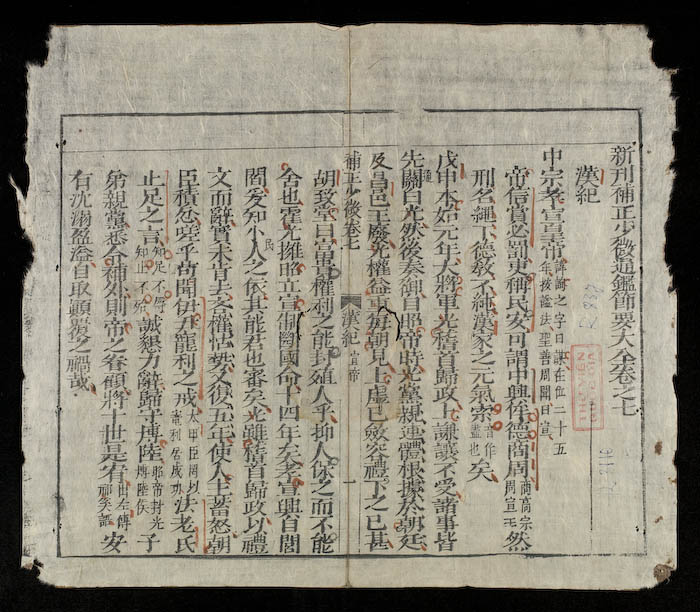 新刊補正少微通鑑節要大全卷之七
漢紀
中宗孝宣皇帝 諱詢之字曰謀在位二十五年按謚法聖善周聞曰宣
帝信賞必罰吏稱民安可謂中興侔德商周 商高宗周宣王 然
刑名繩下德教不純漢家之元氣索 音作盡也 矣
戊申本始元年大將軍光稽首歸政上謙讓不受諸事皆
先關白光然後奏御自昭帝時光黨親連體根據於朝廷
及昌邑王廢光權益重每朝見上虛己斂容禮下之已甚
補正少微卷七 漢紀 宣帝 一
胡致堂曰富貴權利之能封殖人乎抑人保之而不能
舍也霍光擁昭立宣制斷國命十四年矣孝宣興自閭
閻爰知小民之依其能君也審矣光雖稽首歸政以禮
文而辭實未肯去各權怙勢又復五年使人主蓄怒朝
臣積忿嗟乎苟聞伊尹寵利之戒 太甲臣罔以寵利居成功 法老氏
止足之言 知足不辱知止不殆 誠懇力辭歸守博陸 昭帝封光博陸侯 子
弟親黨悉令補外則帝之眷顧將十世是宥 出左傳祁奚語 安
有沈溺盈溢自取顛覆之禍哉
THO MEN